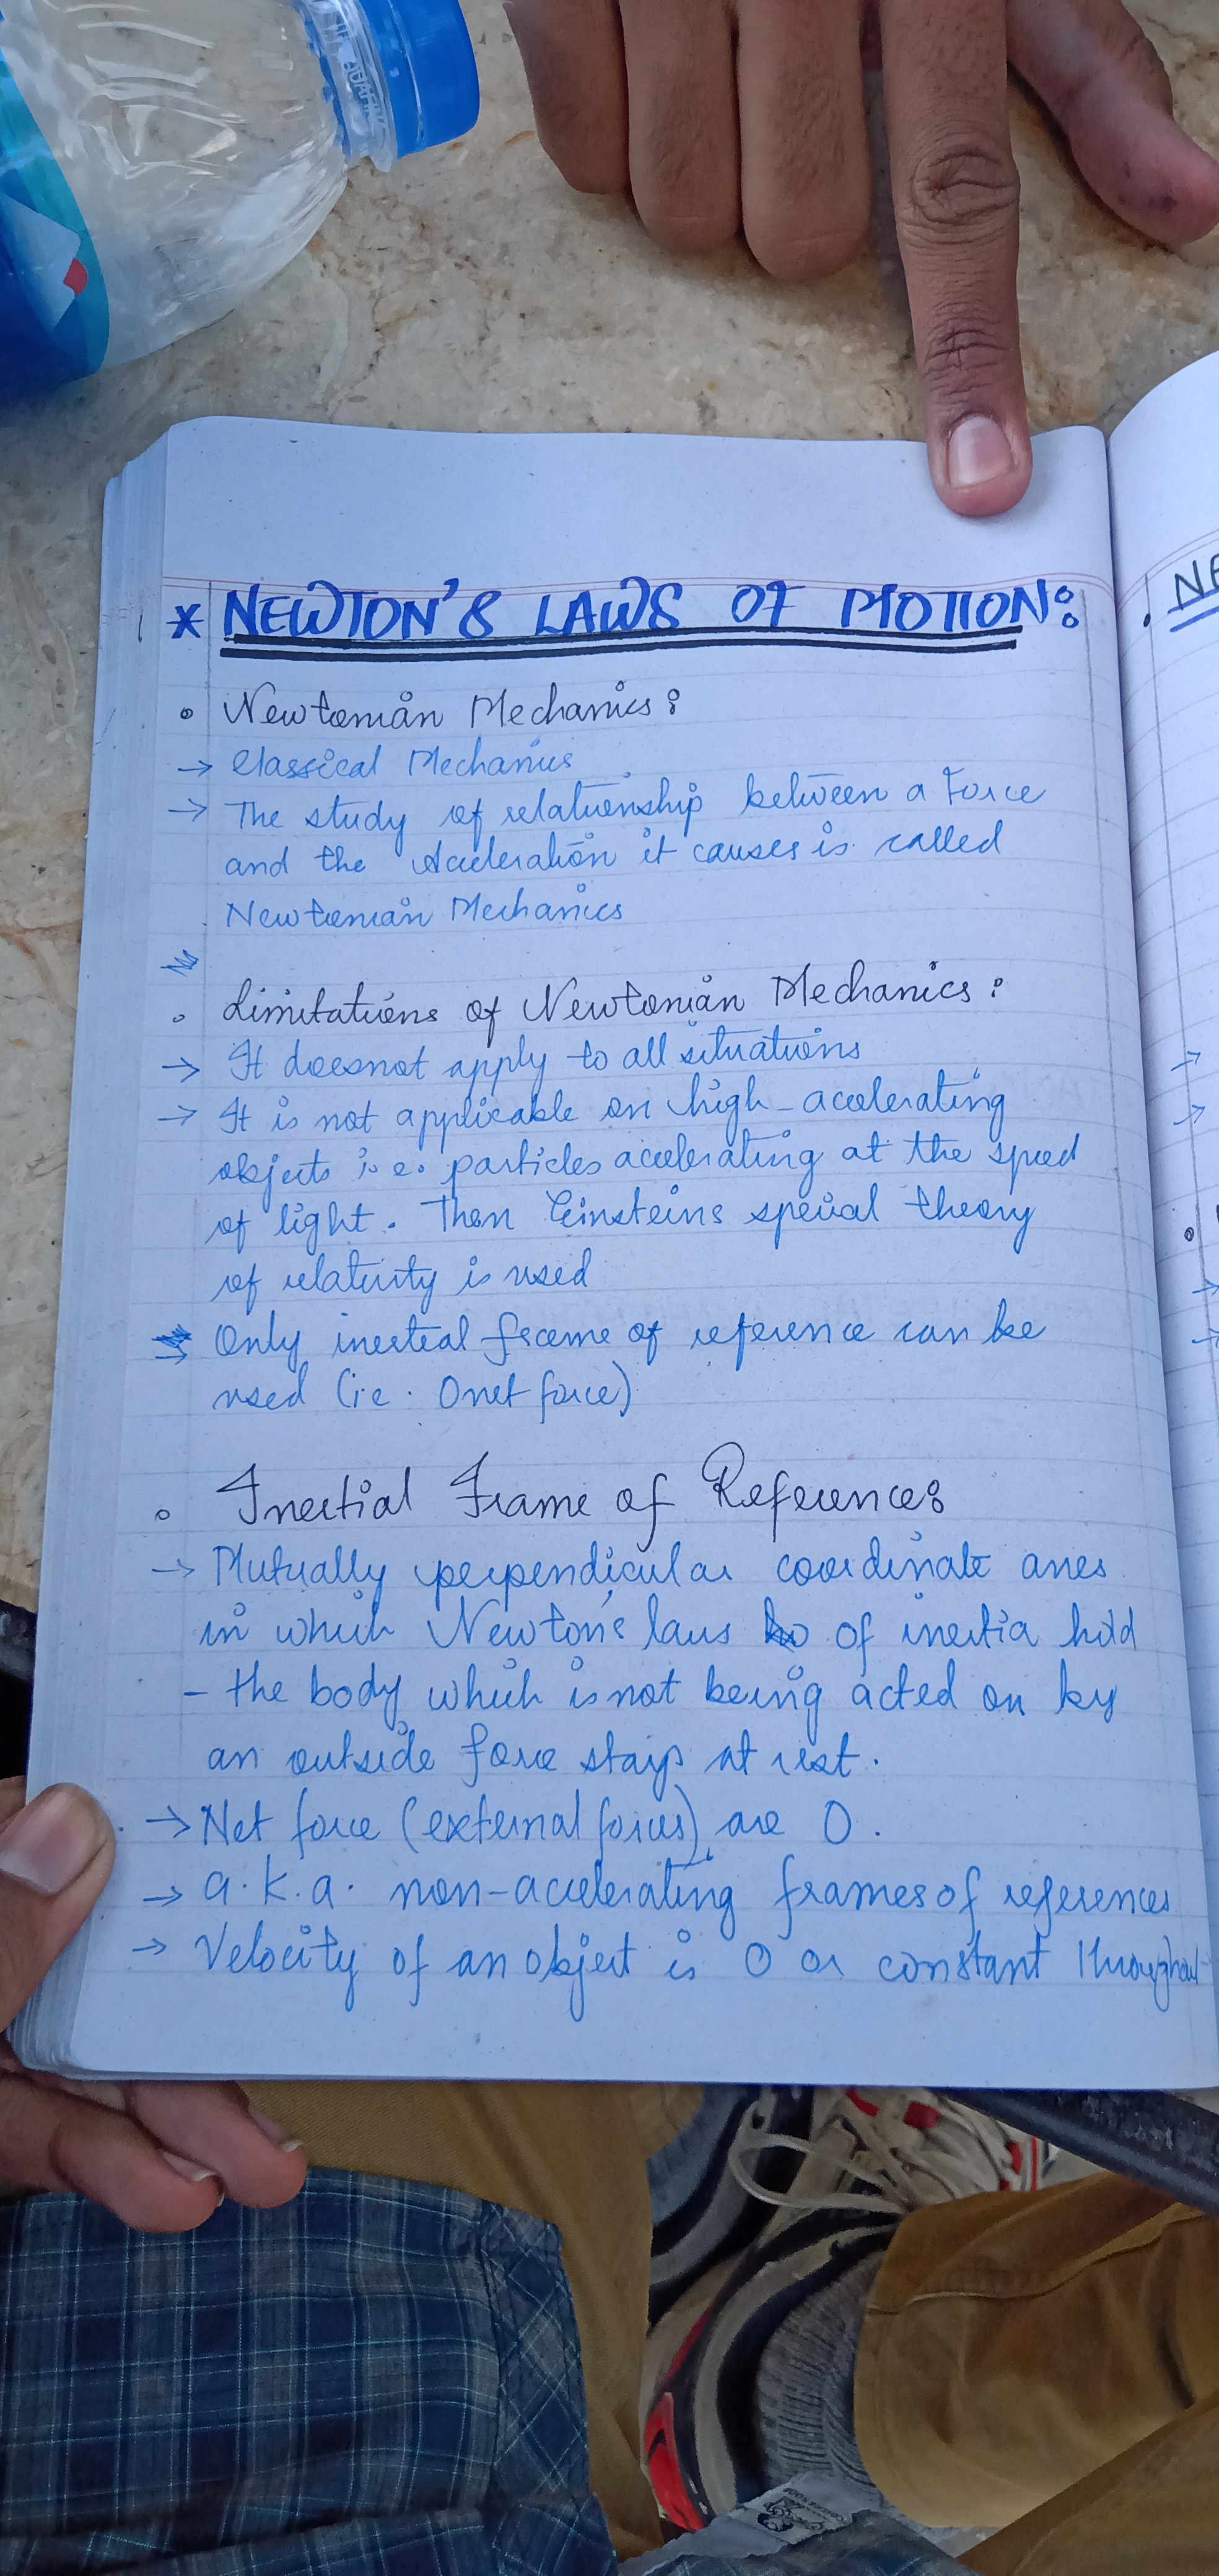 * NEWTON'S LAWS OF MOTION:
• Newtonian Mechanics:
→ Classical Mechanics
→ The study of relationship between a Force
and the Acceleration it causes is called
Newtonian Mechanics
• Limitations of Newtonian Mechanics:
→ It doesnot apply to all situations
→ It is not applicable on high-accelerating
objects i.e. particles accelerating at the speed
of light. Then Einsteins special theory
of relativity is used
→ Only inertial frame of reference can be
used (i.e. 0 net force)
• Inertial Frame of Reference:
→ Mutually perpendicular coordinate axes
in which Newton's laws of inertia hold
- the body which is not being acted on by
an outside force stays at rest.
→ Net force (external forces) are 0.
→ a.k.a. non-accelerating frames of references
→ Velocity of an object is 0 or constant throughout
• NE